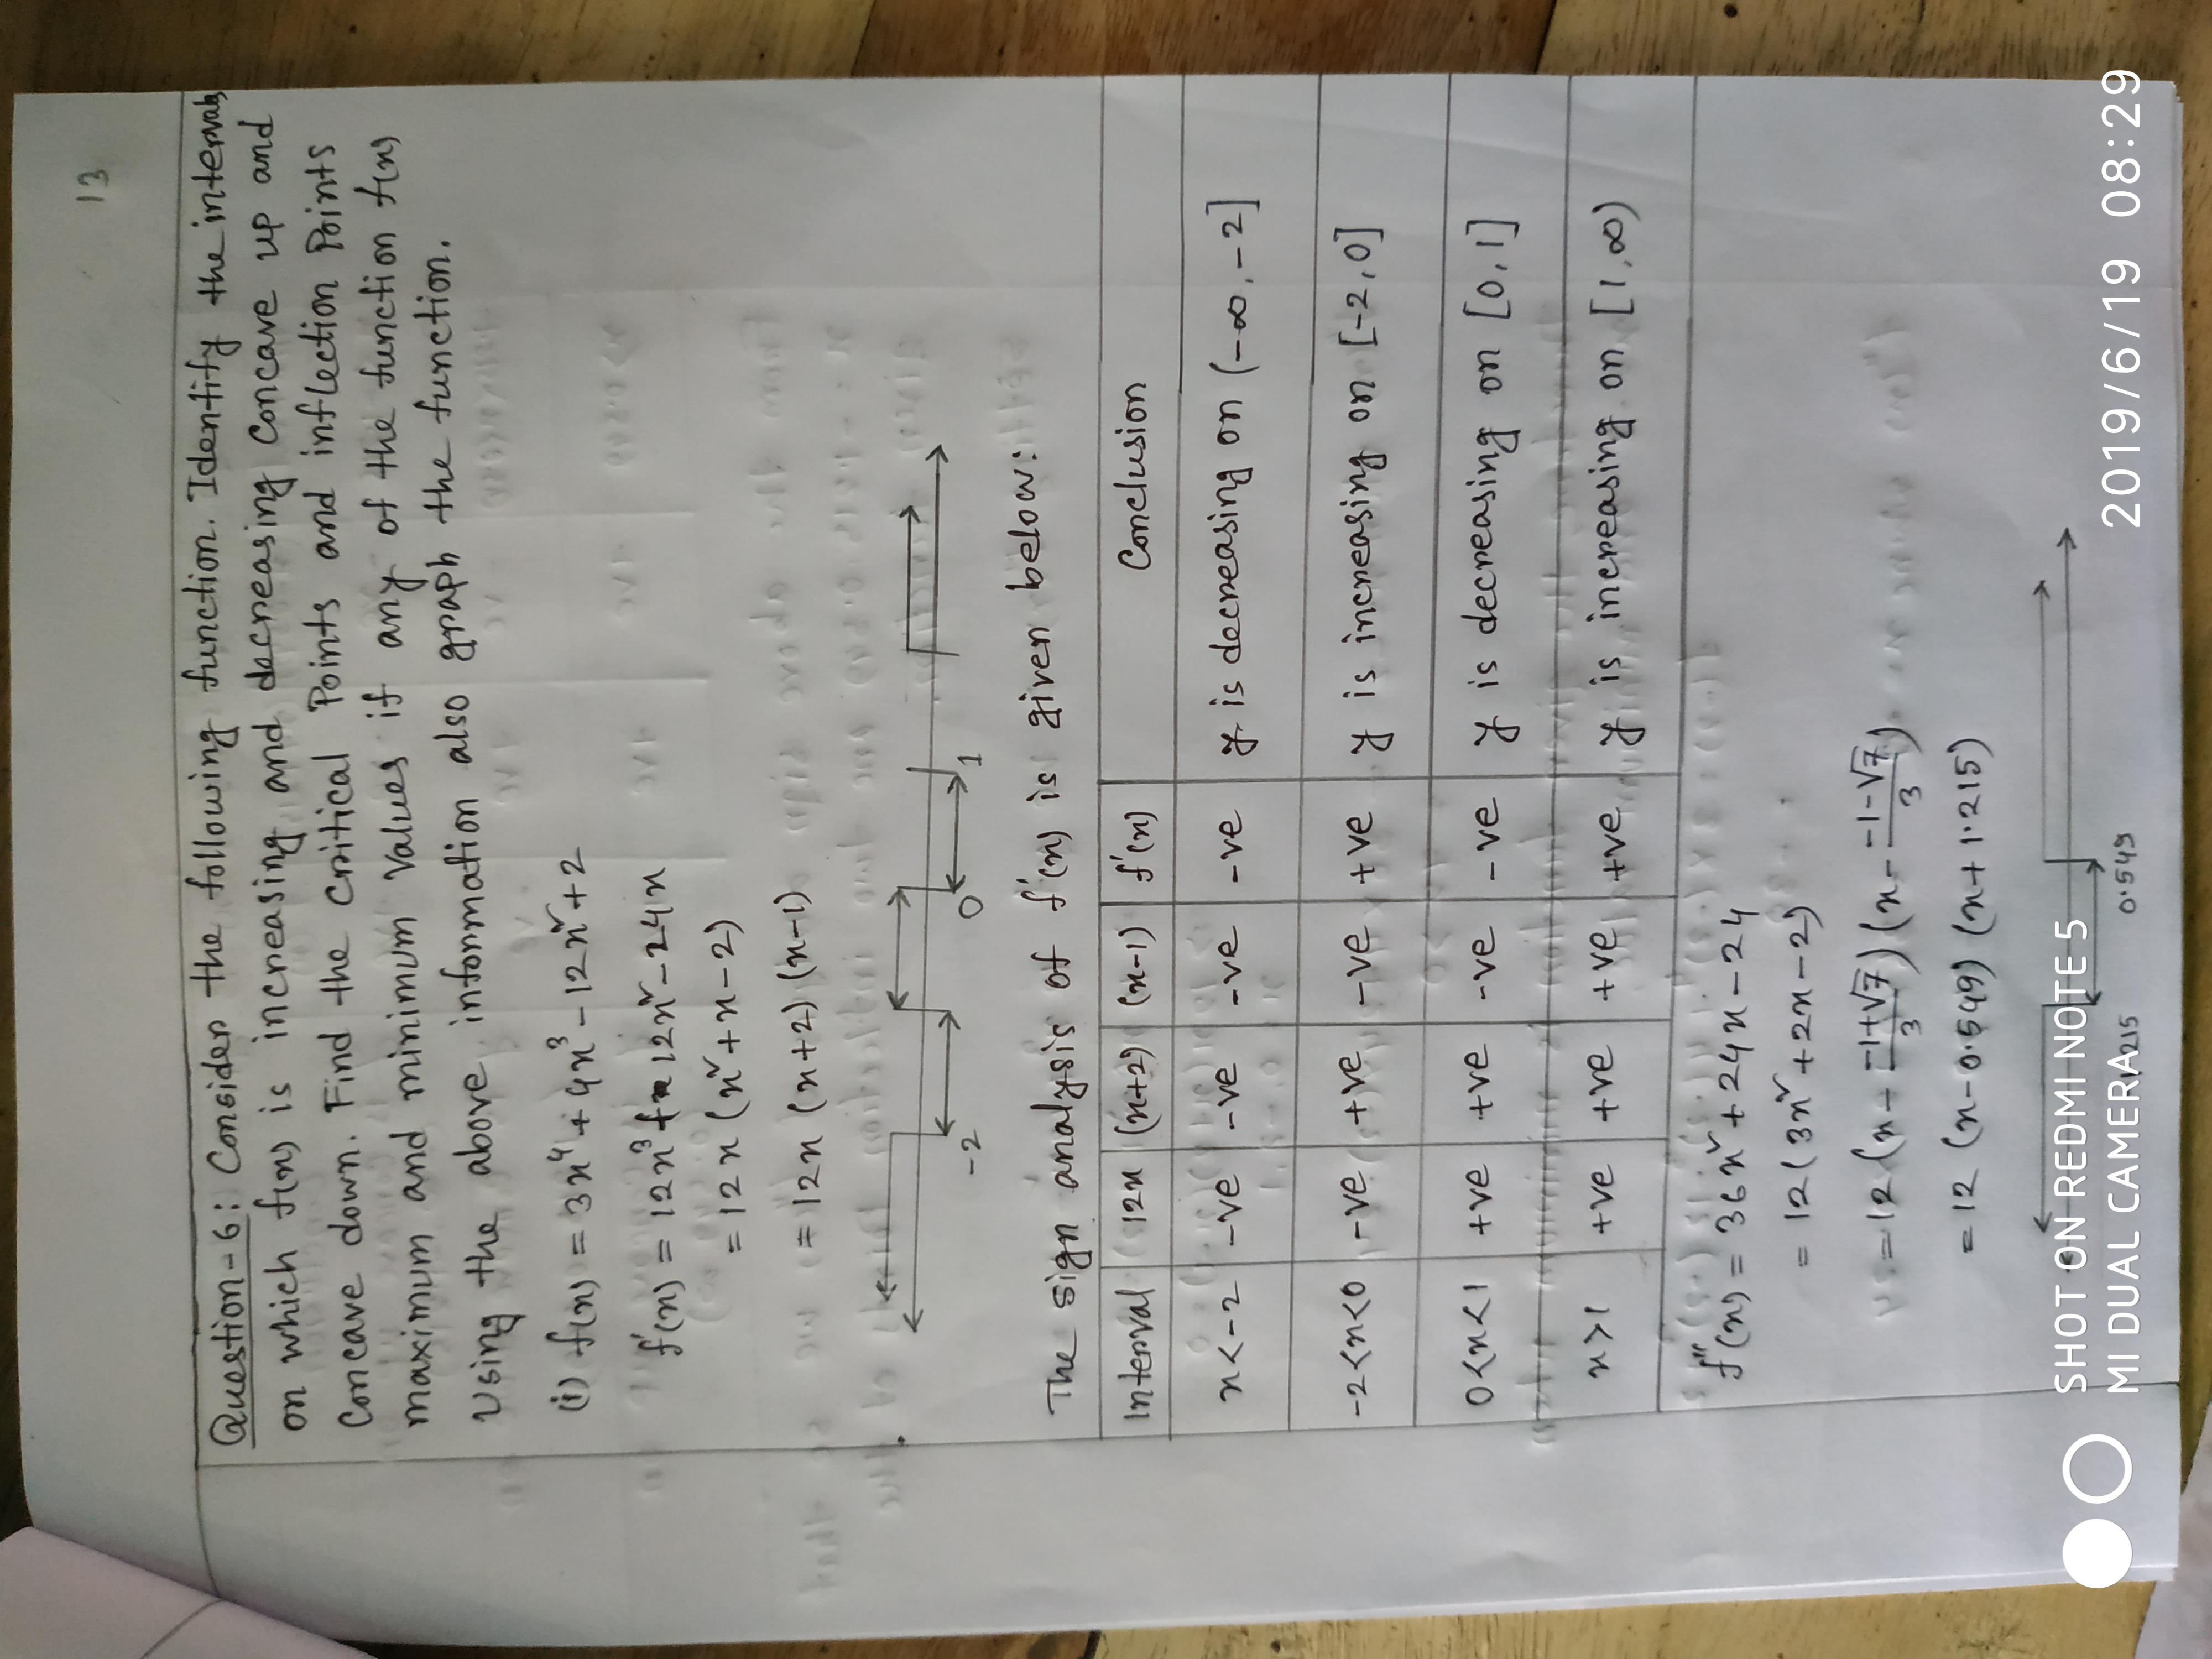 13
Question-6: Consider the following function. Identify the intervals
on which f(x) is increasing and decreasing concave up and
concave down. Find the critical Points and inflection Points
maximum and minimum values if any of the function f(x)
Using the above information also graph the function.
(i) f(x) = 3x⁴ + 4x³ - 12x² + 2
f'(x) = 12x³ + 12x² - 24x
= 12x (x² + x - 2)
= 12x (x+2) (x-1)
-2 0 1
The sign analysis of f'(x) is given below:
Interval 12x (x+2) (x-1) f'(x) Conclusion
x<-2 -ve -ve -ve -ve y is decreasing on (-∞, -2]
-2<x<0 -ve +ve -ve +ve y is increasing on [-2, 0]
0<x<1 +ve +ve -ve -ve y is decreasing on [0, 1]
x>1 +ve +ve +ve +ve y is increasing on [1, ∞)
f''(x) = 36x² + 24x - 24
= 12(3x² + 2x - 2)
= 12 (x - (-1+√7)/3) (x - (-1-√7)/3)
= 12 (x - 0.549) (x + 1.215)
SHOT ON REDMI NOTE 5
MI DUAL CAMERA
1.215 0.549
2019/6/19 08:29